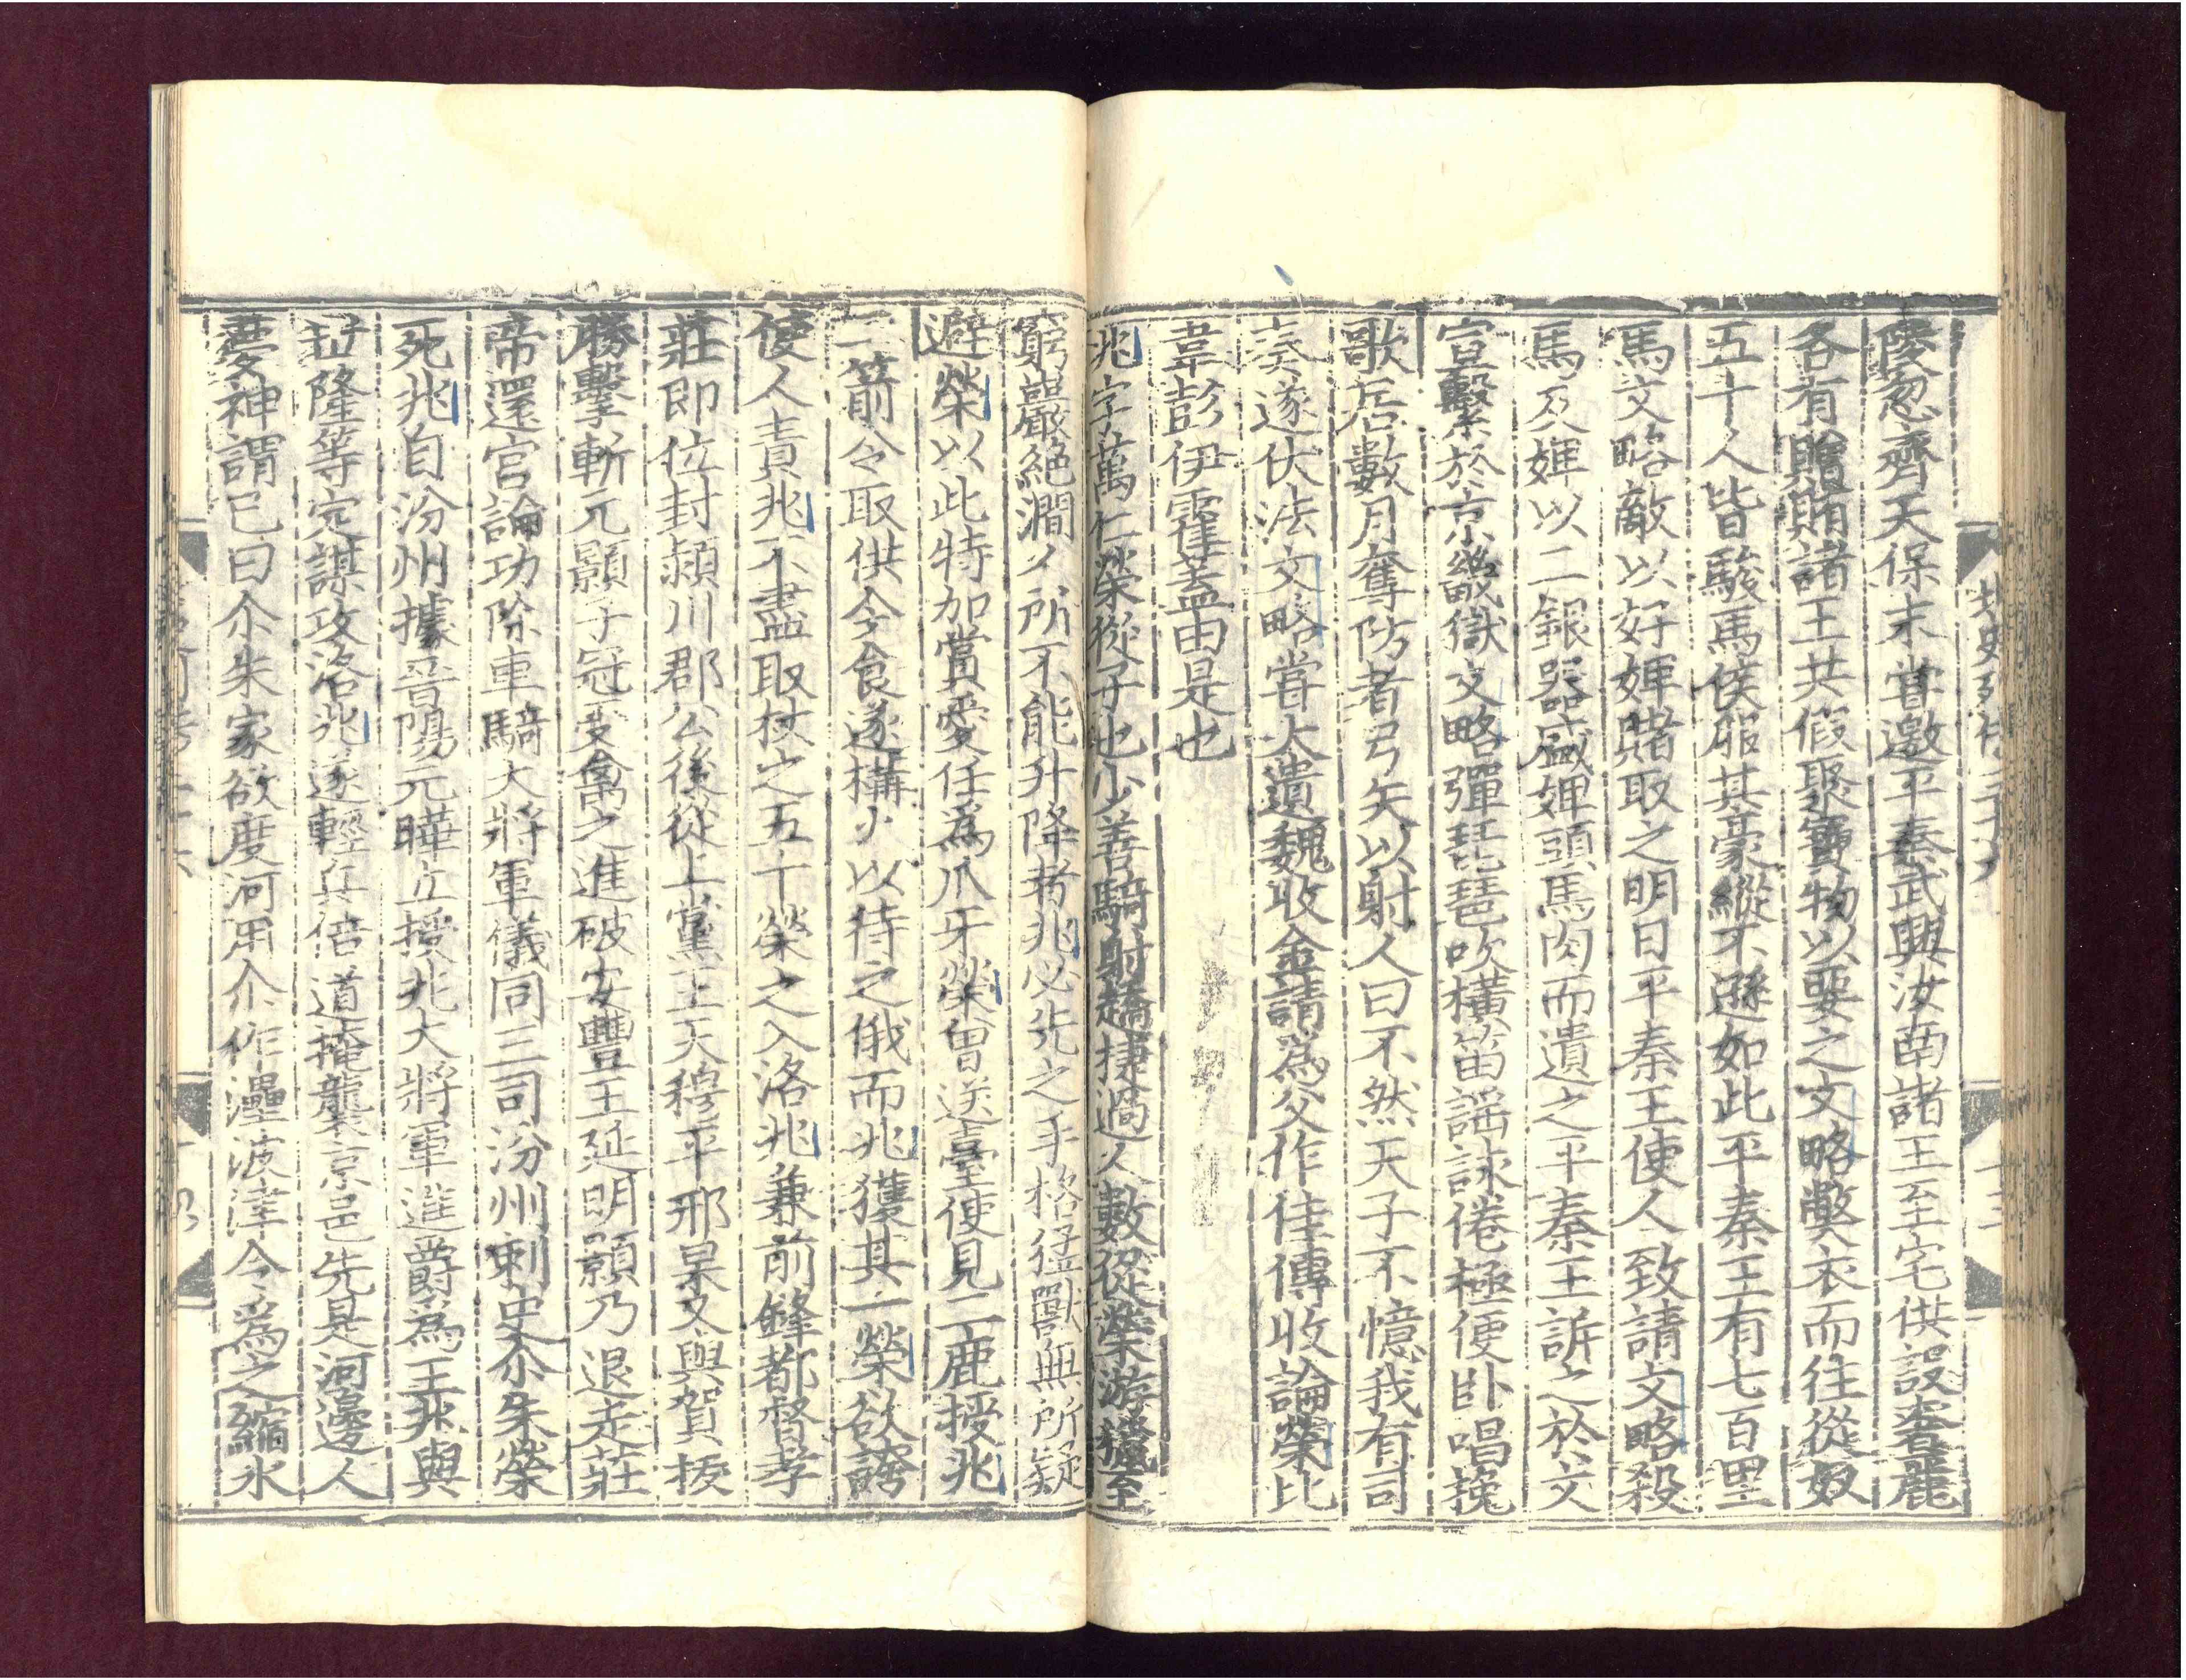 陵忽齊天保末嘗邀平秦武興汝南諸王至宅供設奢麗
各有贈賄諸王共假聚寶物以要之文略弊衣而往從奴
五十人皆駿馬侯服其豪縱不遜如此平秦王有七百里
馬文略敵以好婢賭取之明日平秦王使人致請文略殺
馬及婢以二銀器盛婢頭馬肉而遺之平秦王訴之於文
宣繫於京畿獄文略彈琵琶吹橫笛謡詠倦極便卧唱挽
歌居數月奪防者弓矢以射人曰不然天子不憶我有司
奏遂伏法文略嘗大遺魏收金請爲父作佳傳收論榮比
韋彭伊霍蓋由是也
兆字萬仁榮從子也少善騎射趫捷過人數從榮游獵至
窮巖絶澗人所不能升降者兆必先之手格猛獸無所疑
避榮以此特加賞愛任爲爪牙榮曾送臺使見二鹿授兆
二箭令取供今食遂構火以待之俄而兆獲其一榮欲誇
使人責兆不盡取杖之五十榮之入洛兆兼前鋒都督孝
莊即位封潁川郡公後從上黨王天穆平邢杲又與賀拔
勝擊斬元顥子冠受禽之進破安豐王延明顥乃退走莊
帝還宫論功除車騎大將軍儀同三司汾州刺史尒朱榮
死兆自汾州據晉陽元曄立授兆大將軍進爵爲王兆與
丗隆等定謀攻洛兆遂輕兵倍道掩襲京邑先是河邊人
夢神謂已曰尒朱家欲度河用尒作灅波津令爲之縮水